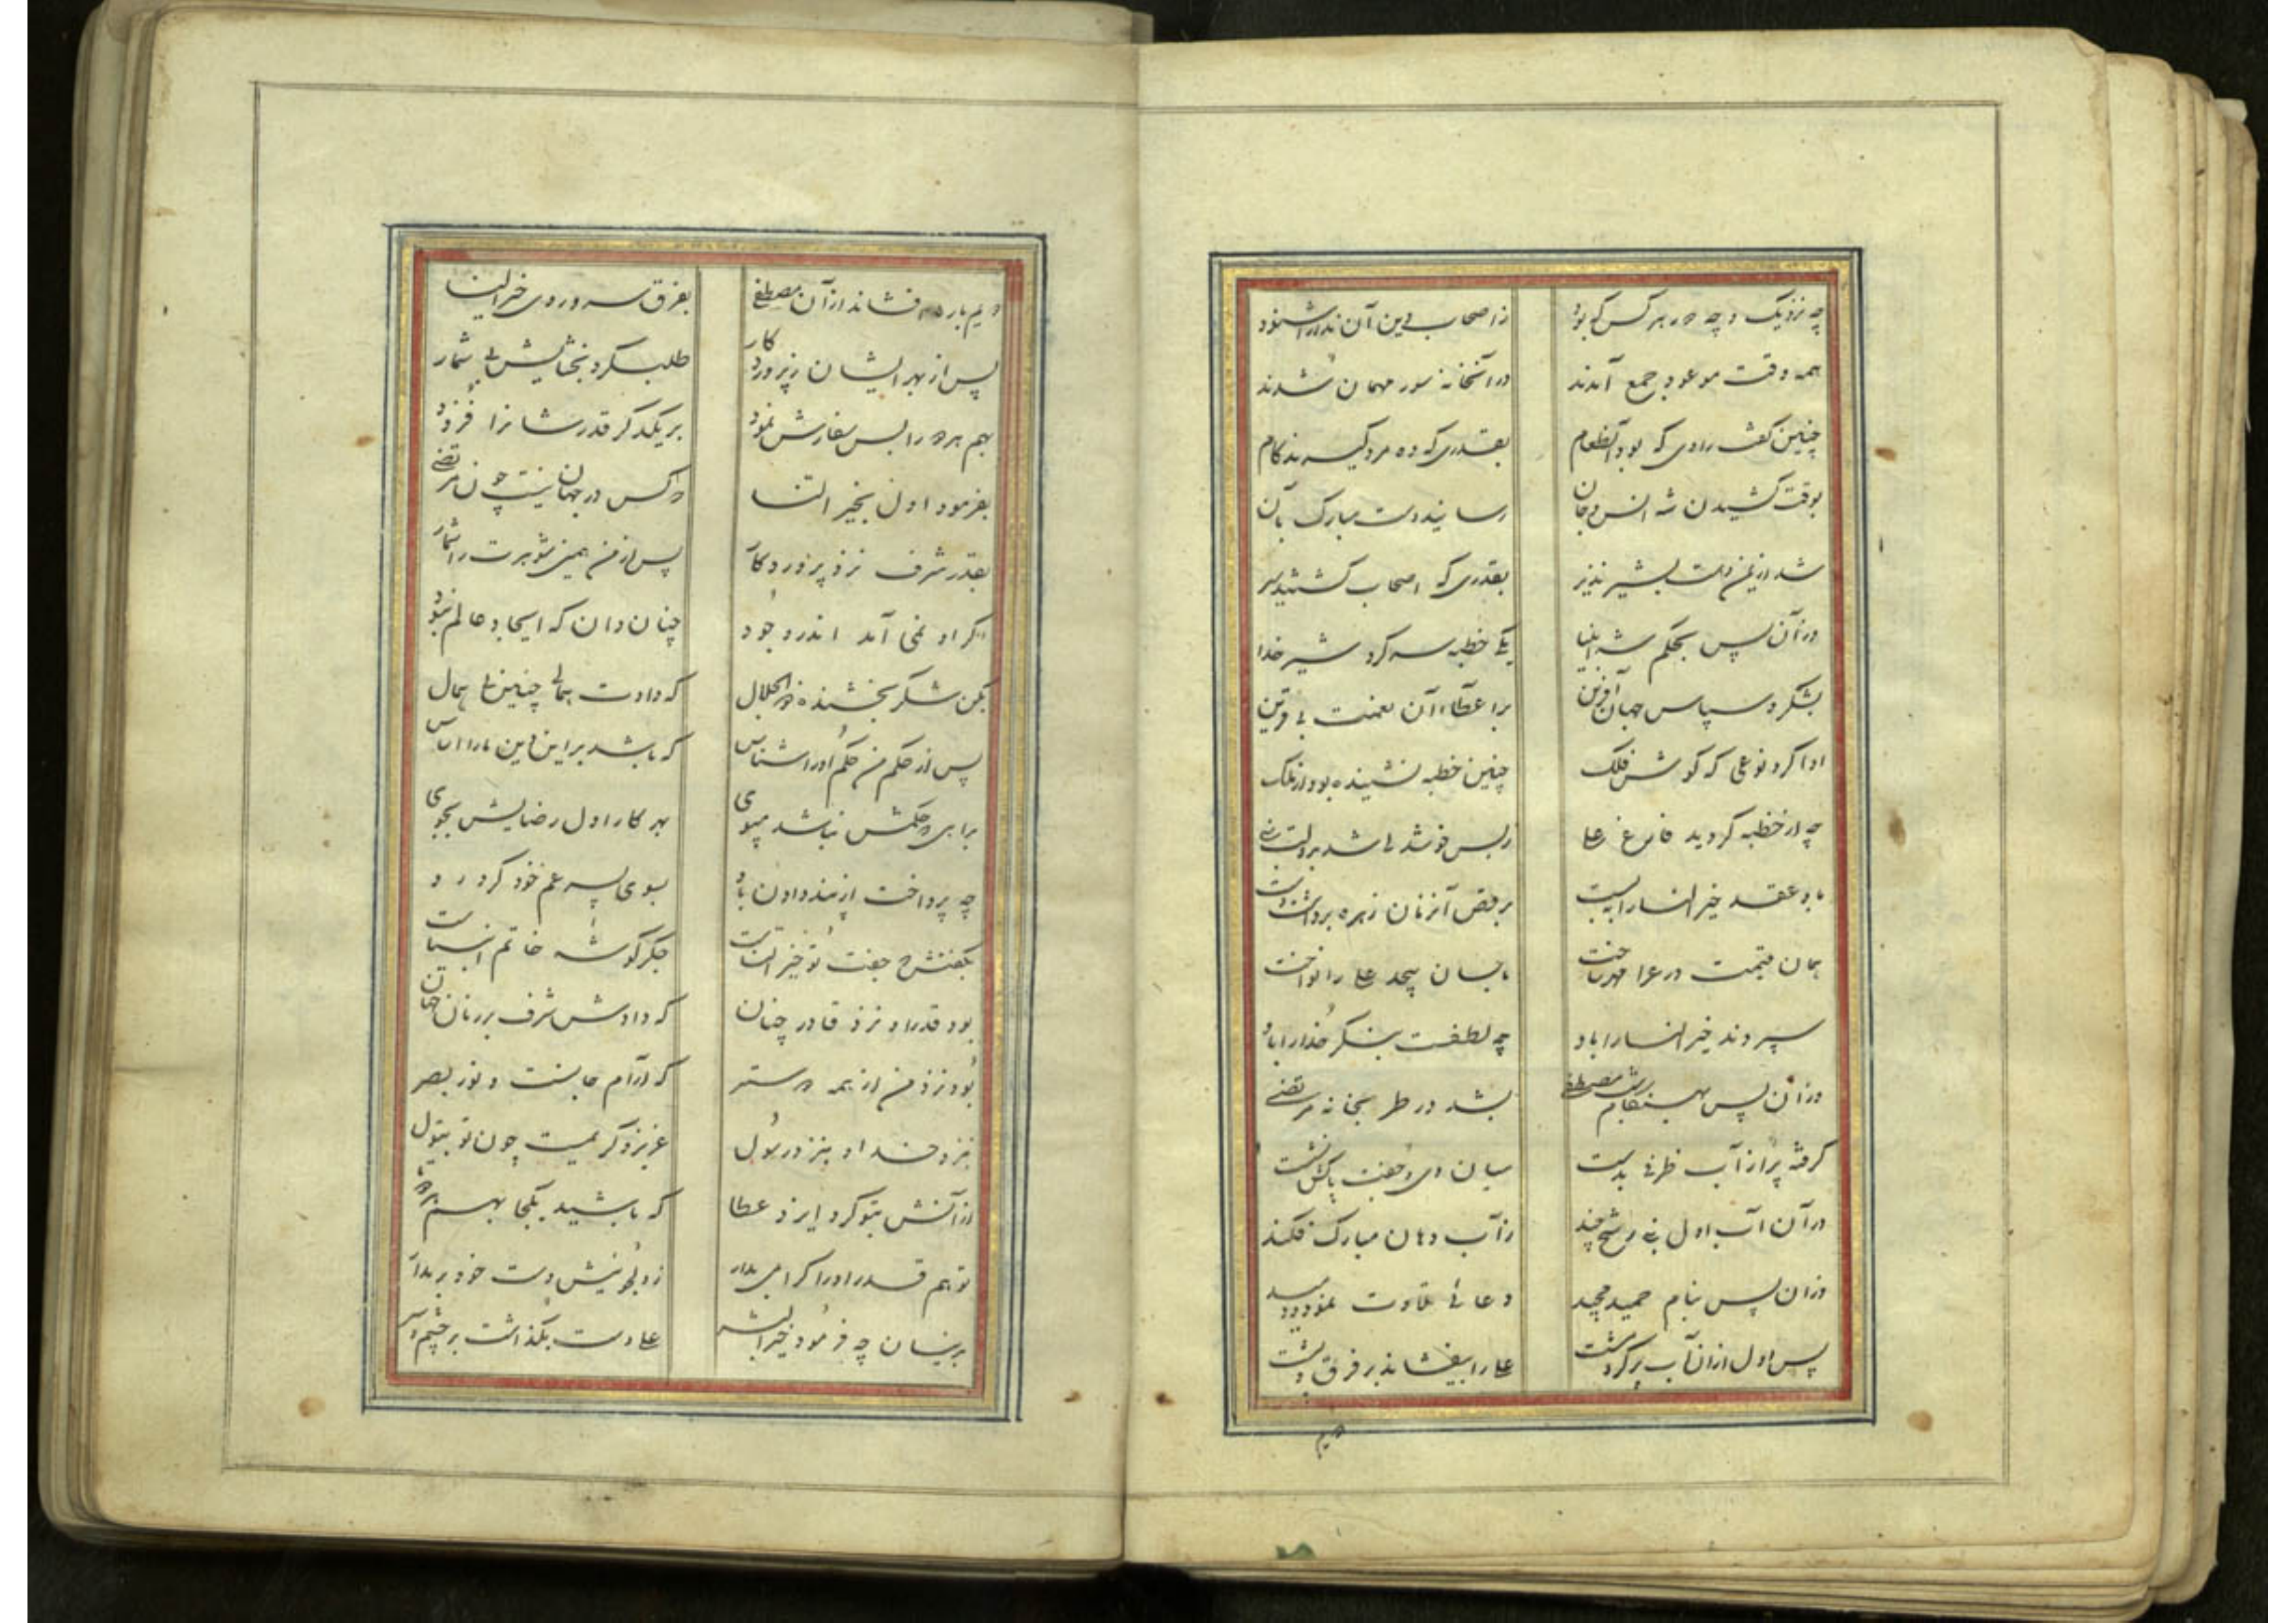 چه نزدیک و چه دور هر کس که بود زاصحاب دین آن ندا را شنود
همه وقت موعود جمع آمدند در آنخانه سور مهمان شدند
چنین گفت راوی که بود آنطعام بقدری که ده مرد گیرند کام
بوقت کشیدن شه انس و جان رسانید دست مبارک بآن
شد از یمن دست بشیر نذیر بقدری که اصحاب گشتند سیر
وز آن پس بحکم شه انبیا یکی خطبه سر کرد شیر خدا
بشکر و سپاس جهان آفرین برا عطاء آن نعمت بی قرین
ادا کرد نوعی که گوش فلک چنین خطبه نشنیده بود از ملک
چه از خطبه گردید فارغ علی زبس خوشدلی شد بدولت
باو عقد خیر النسا را ببست برقص آنزمان زهره برداشت دست
همان قیمت درع را مهر ساخت باحسان بیحد علی را نواخت
سپردند خیر النسا را باو چه لطفست بنگر خدا را باو
وز آن پس بهنگام شب مصطفی بشد در طربخانه مرتضی
گرفته پر از آب ظرفی بدست میان وی و جفت پاکش نشست
در آن آب اول نبی رشح چند زآب دهان مبارک فکند
وزان پس بنام حمید مجید دعائی تلاوت نمود و دمید
پس اول ازان آب پر کرد مشت علی را بیفشاند بر فرق و پشت
دویم
دویم بار هم فشاند از آن مصطفی بفرق سر و روی خیر النسا
پس از بهر ایشان زپروردکار طلب کرد بخشایش بی شمار
بهم هر دو را بس سفارش نمود بر یکدگر قدرشانرا فزود
بفرمود اول بخیر النسا که کس در جهان نیست چون مرتضی
بقدر شرف نزد پروردکار پس از من همین شوهرت را شمار
اگر او نمی آمد اندر وجود چنان دان که ایجاد عالم نبود
بکن شکر بخشنده ذو الجلال که دادت همالی چنین بی همال
پس از حکم من حکم او را شناس که باشد بر این دین ما را اساس
براهی که حکمش نباشد مپوی بهر کار اول رضایش بجوی
چه پرداخت از پند دادن باو بسوی پسر عم خود کرد رو
بگفتش که جفت تو خیر النساست جگر گوشه خاتم انبیاست
بود قدر او نزد قادر چنان که دادش شرف بر زنان جهان
بود نزد من از همه دوستتر که آرام جانست و نور بصر
بنزد خدا و بنزد رسول عزیز و گرامیست چون تو بتول
از آنش بتو کرد ایزد عطا که باشید یکجا بهم
تو هم قدر او را گرامی بدار زدلجوئیش دست خود بر مدار
بدینسان چه فرمود خیر البشر علی دست بگذاشت بر چشم و سر